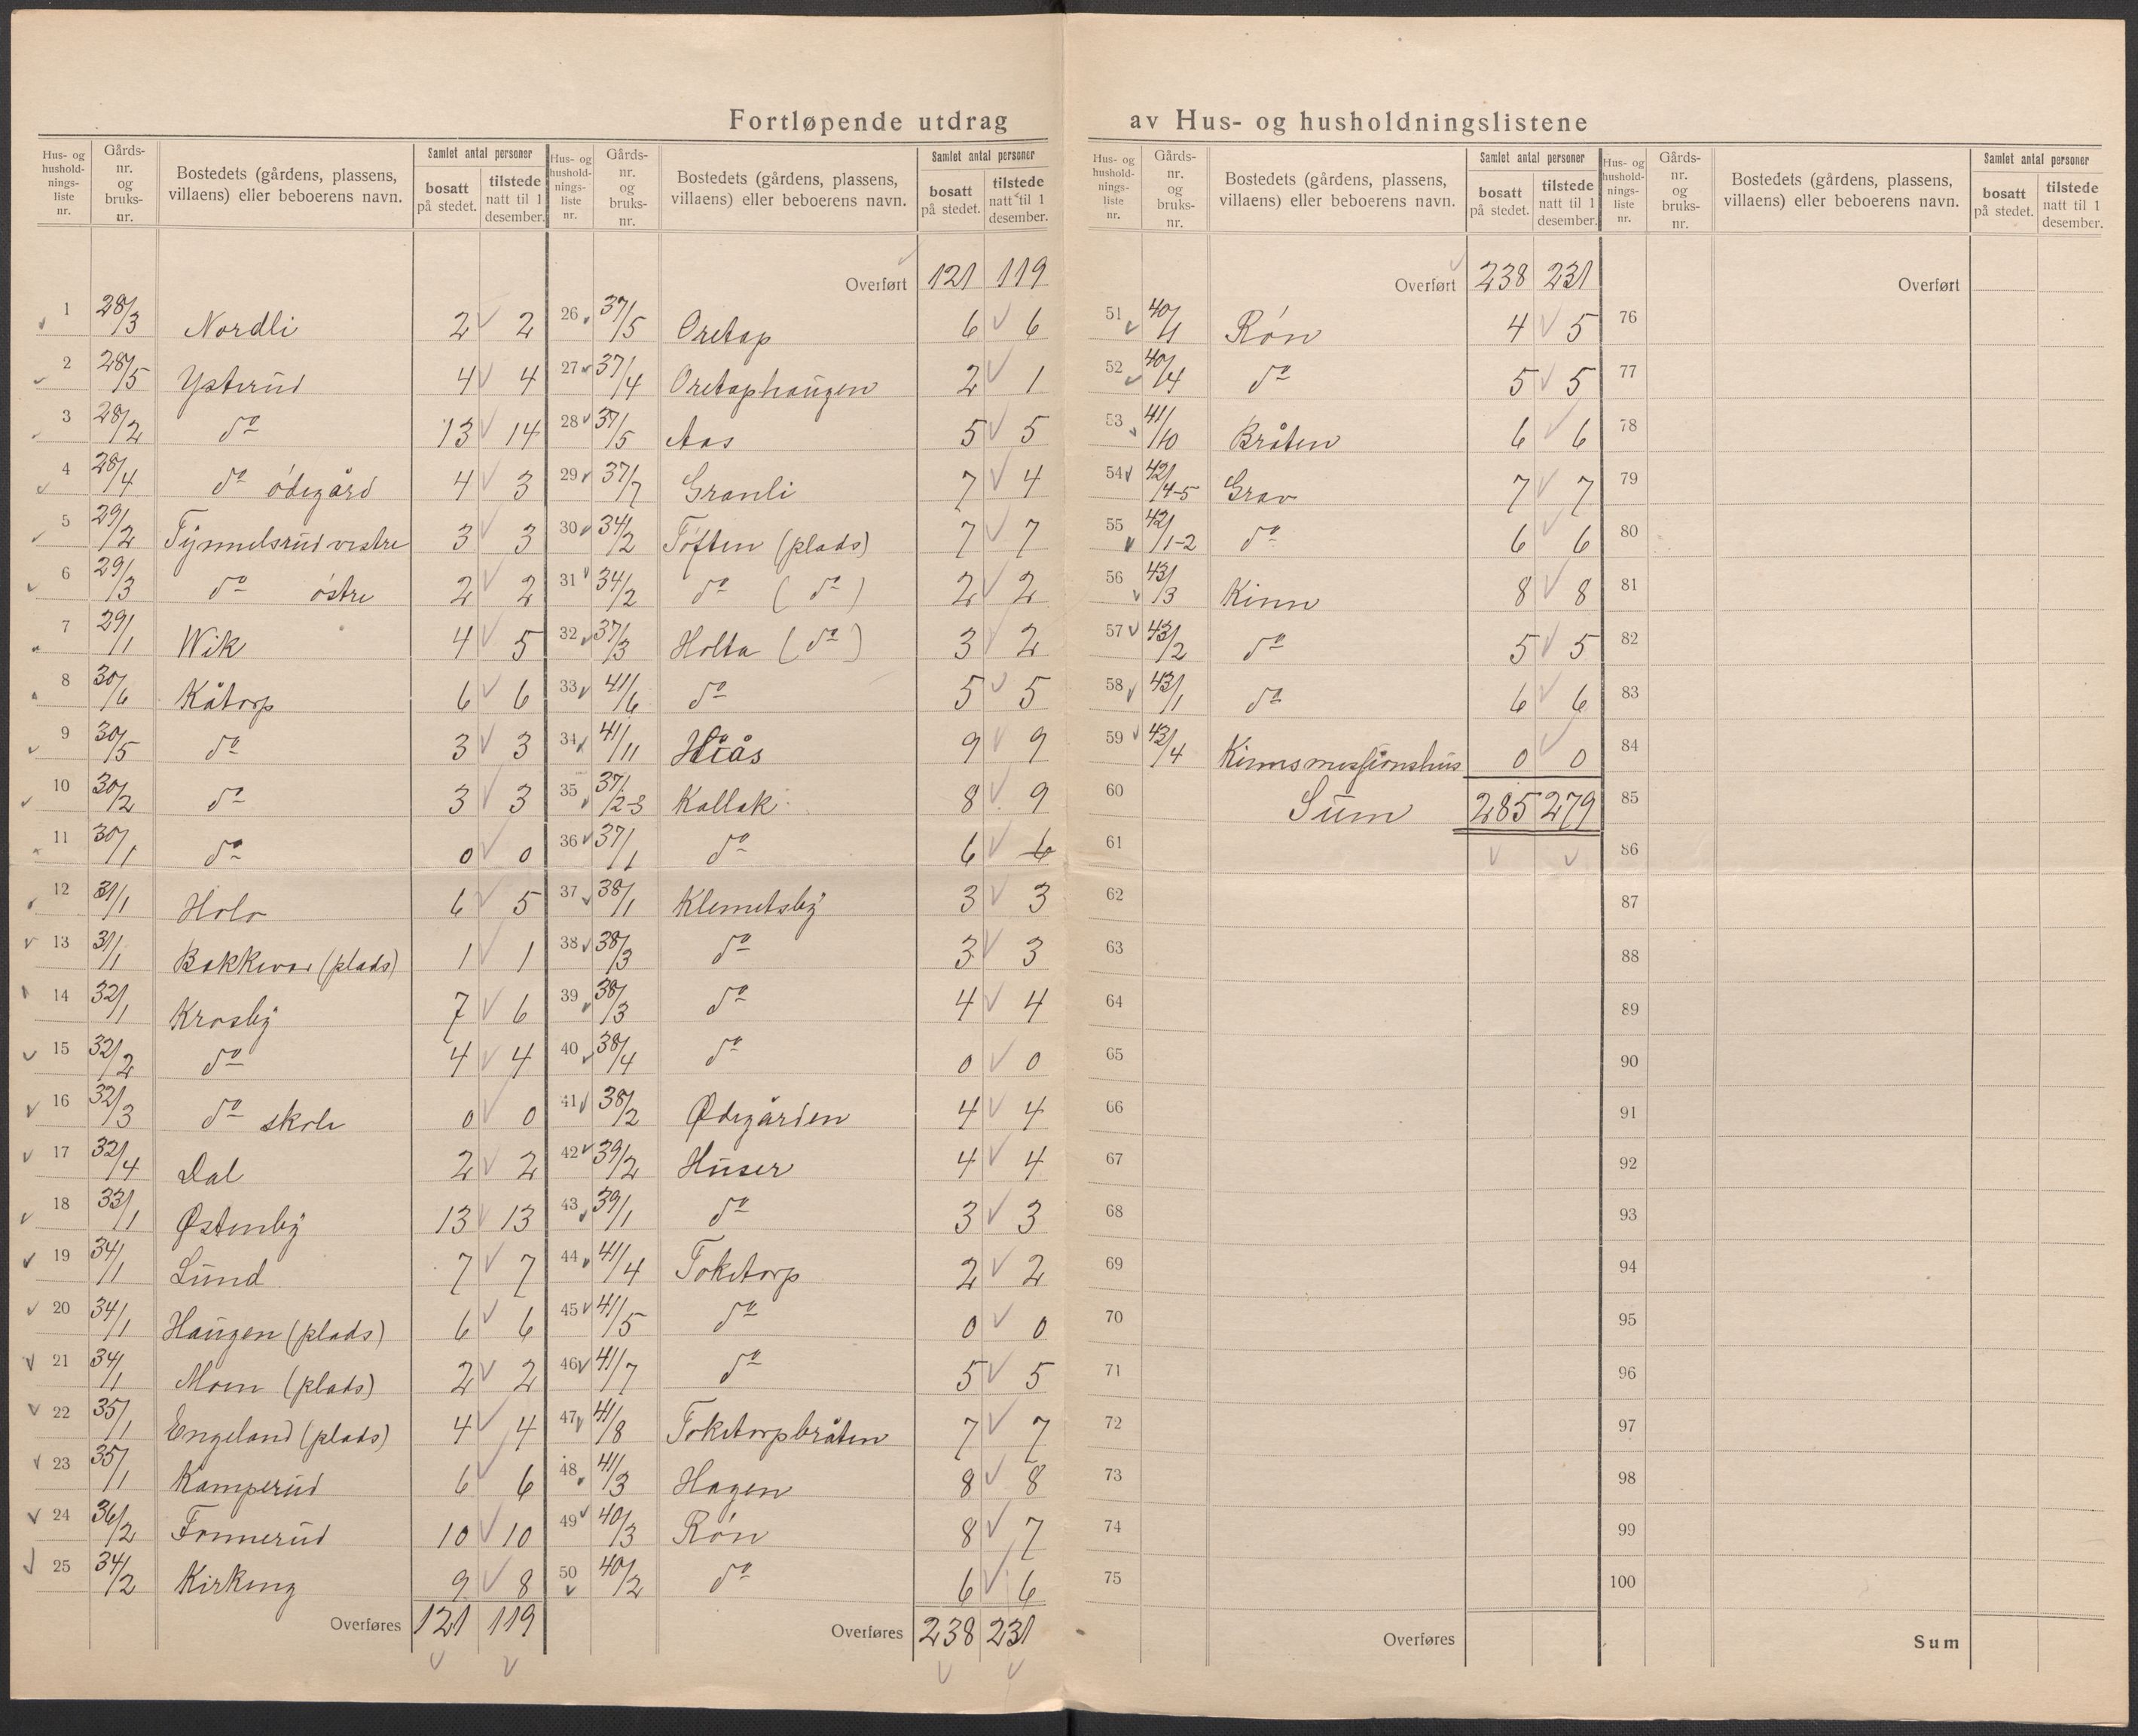 Fortløpende utdrag av Hus- og husholdningslistene
Hus- og hushold- nings- liste nr. | Gårds- nr. og bruks- nr. | Bostedets (gårdens, plassens, villaens) eller beboerens navn. | Samlet antal personer | bosatt på stedet. | tilstede natt til 1 desember.
1 28/3 Nordli 2 2
2 28/5 Ysterud 4 4
3 28/2 do 13 14
4 28/4 do ødegård 4 3
5 29/2 Tynnelsrud vestre 3 3
6 29/3 do østre 2 2
7 29/1 Wik 4 5
8 30/6 Kåtorp 6 6
9 30/5 do 3 3
10 30/2 do 3 3
11 30/1 do 0 0
12 31/1 Holo 6 5
13 31/1 (plads) 1 1
14 32/1 Krosby 7 6
15 32/2 do 4 4
16 32/3 do skole 0 0
17 32/4 Dal 2 2
18 33/1 Østenby 13 13
19 34/1 Lund 7 7
20 34/1 Haugen (plads) 6 6
21 34/1 Moen (plads) 2 2
22 35/1 Engeland (plads) 4 4
23 35/1 Kamperud 6 6
24 36/2 Fonnerud 10 10
25 34/2 Kirkeng 9 8
Overføres 121 119
Hus- og hushold- nings- liste nr. | Gårds- nr. og bruks- nr. | Bostedets (gårdens, plassens, villaens) eller beboerens navn. | Samlet antal personer | bosatt på stedet. | tilstede natt til 1 desember.
Overført 121 119
26 37/5 Oretop 6 6
27 37/4 Oretophaugen 2 1
28 37/5 Aas 5 5
29 37/7 Granli 7 4
30 34/2 Toften (plads) 7 7
31 34/2 do (do) 2 2
32 37/3 Holta (do) 3 2
33 41/6 do 5 5
34 41/11 Håås 9 9
35 37/2-3 Kallak 8 9
36 37/1 do 6 6
37 38/1 Klemetsby 3 3
38 38/3 do 3 3
39 38/3 do 4 4
40 38/4 do 0 0
41 38/2 Ødegården 4 4
42 39/2 Huser 4 4
43 39/1 do 3 3
44 41/4 Toketorp 2 2
45 41/5 do 0 0
46 41/7 do 5 5
47 41/8 Toketorpbråten 7 7
48 41/3 Hagen 8 8
49 40/3 Røn 8 7
50 40/2 do 6 6
Overføres 238 231
Hus- og hushold- nings- liste nr. | Gårds- nr. og bruks- nr. | Bostedets (gårdens, plassens, villaens) eller beboerens navn. | Samlet antal personer | bosatt på stedet. | tilstede natt til 1 desember.
Overført 238 231
51 40/1 Røn 4 5
52 40/4 do 5 5
53 41/10 Bråten 6 6
54 42/4-5 Grav 7 7
55 42/1-2 do 6 6
56 43/3 Kinn 8 8
57 43/2 do 5 5
58 43/1 do 6 6
59 43/4 Kinnsmissionshus 0 0
60 Sum 285 279
61
62
63
64
65
66
67
68
69
70
71
72
73
74
75
Overføres
Hus- og hushold- nings- liste nr. | Gårds- nr. og bruks- nr. | Bostedets (gårdens, plassens, villaens) eller beboerens navn. | Samlet antal personer | bosatt på stedet. | tilstede natt til 1 desember.
Overført
76
77
78
79
80
81
82
83
84
85
86
87
88
89
90
91
92
93
94
95
96
97
98
99
100
Sum